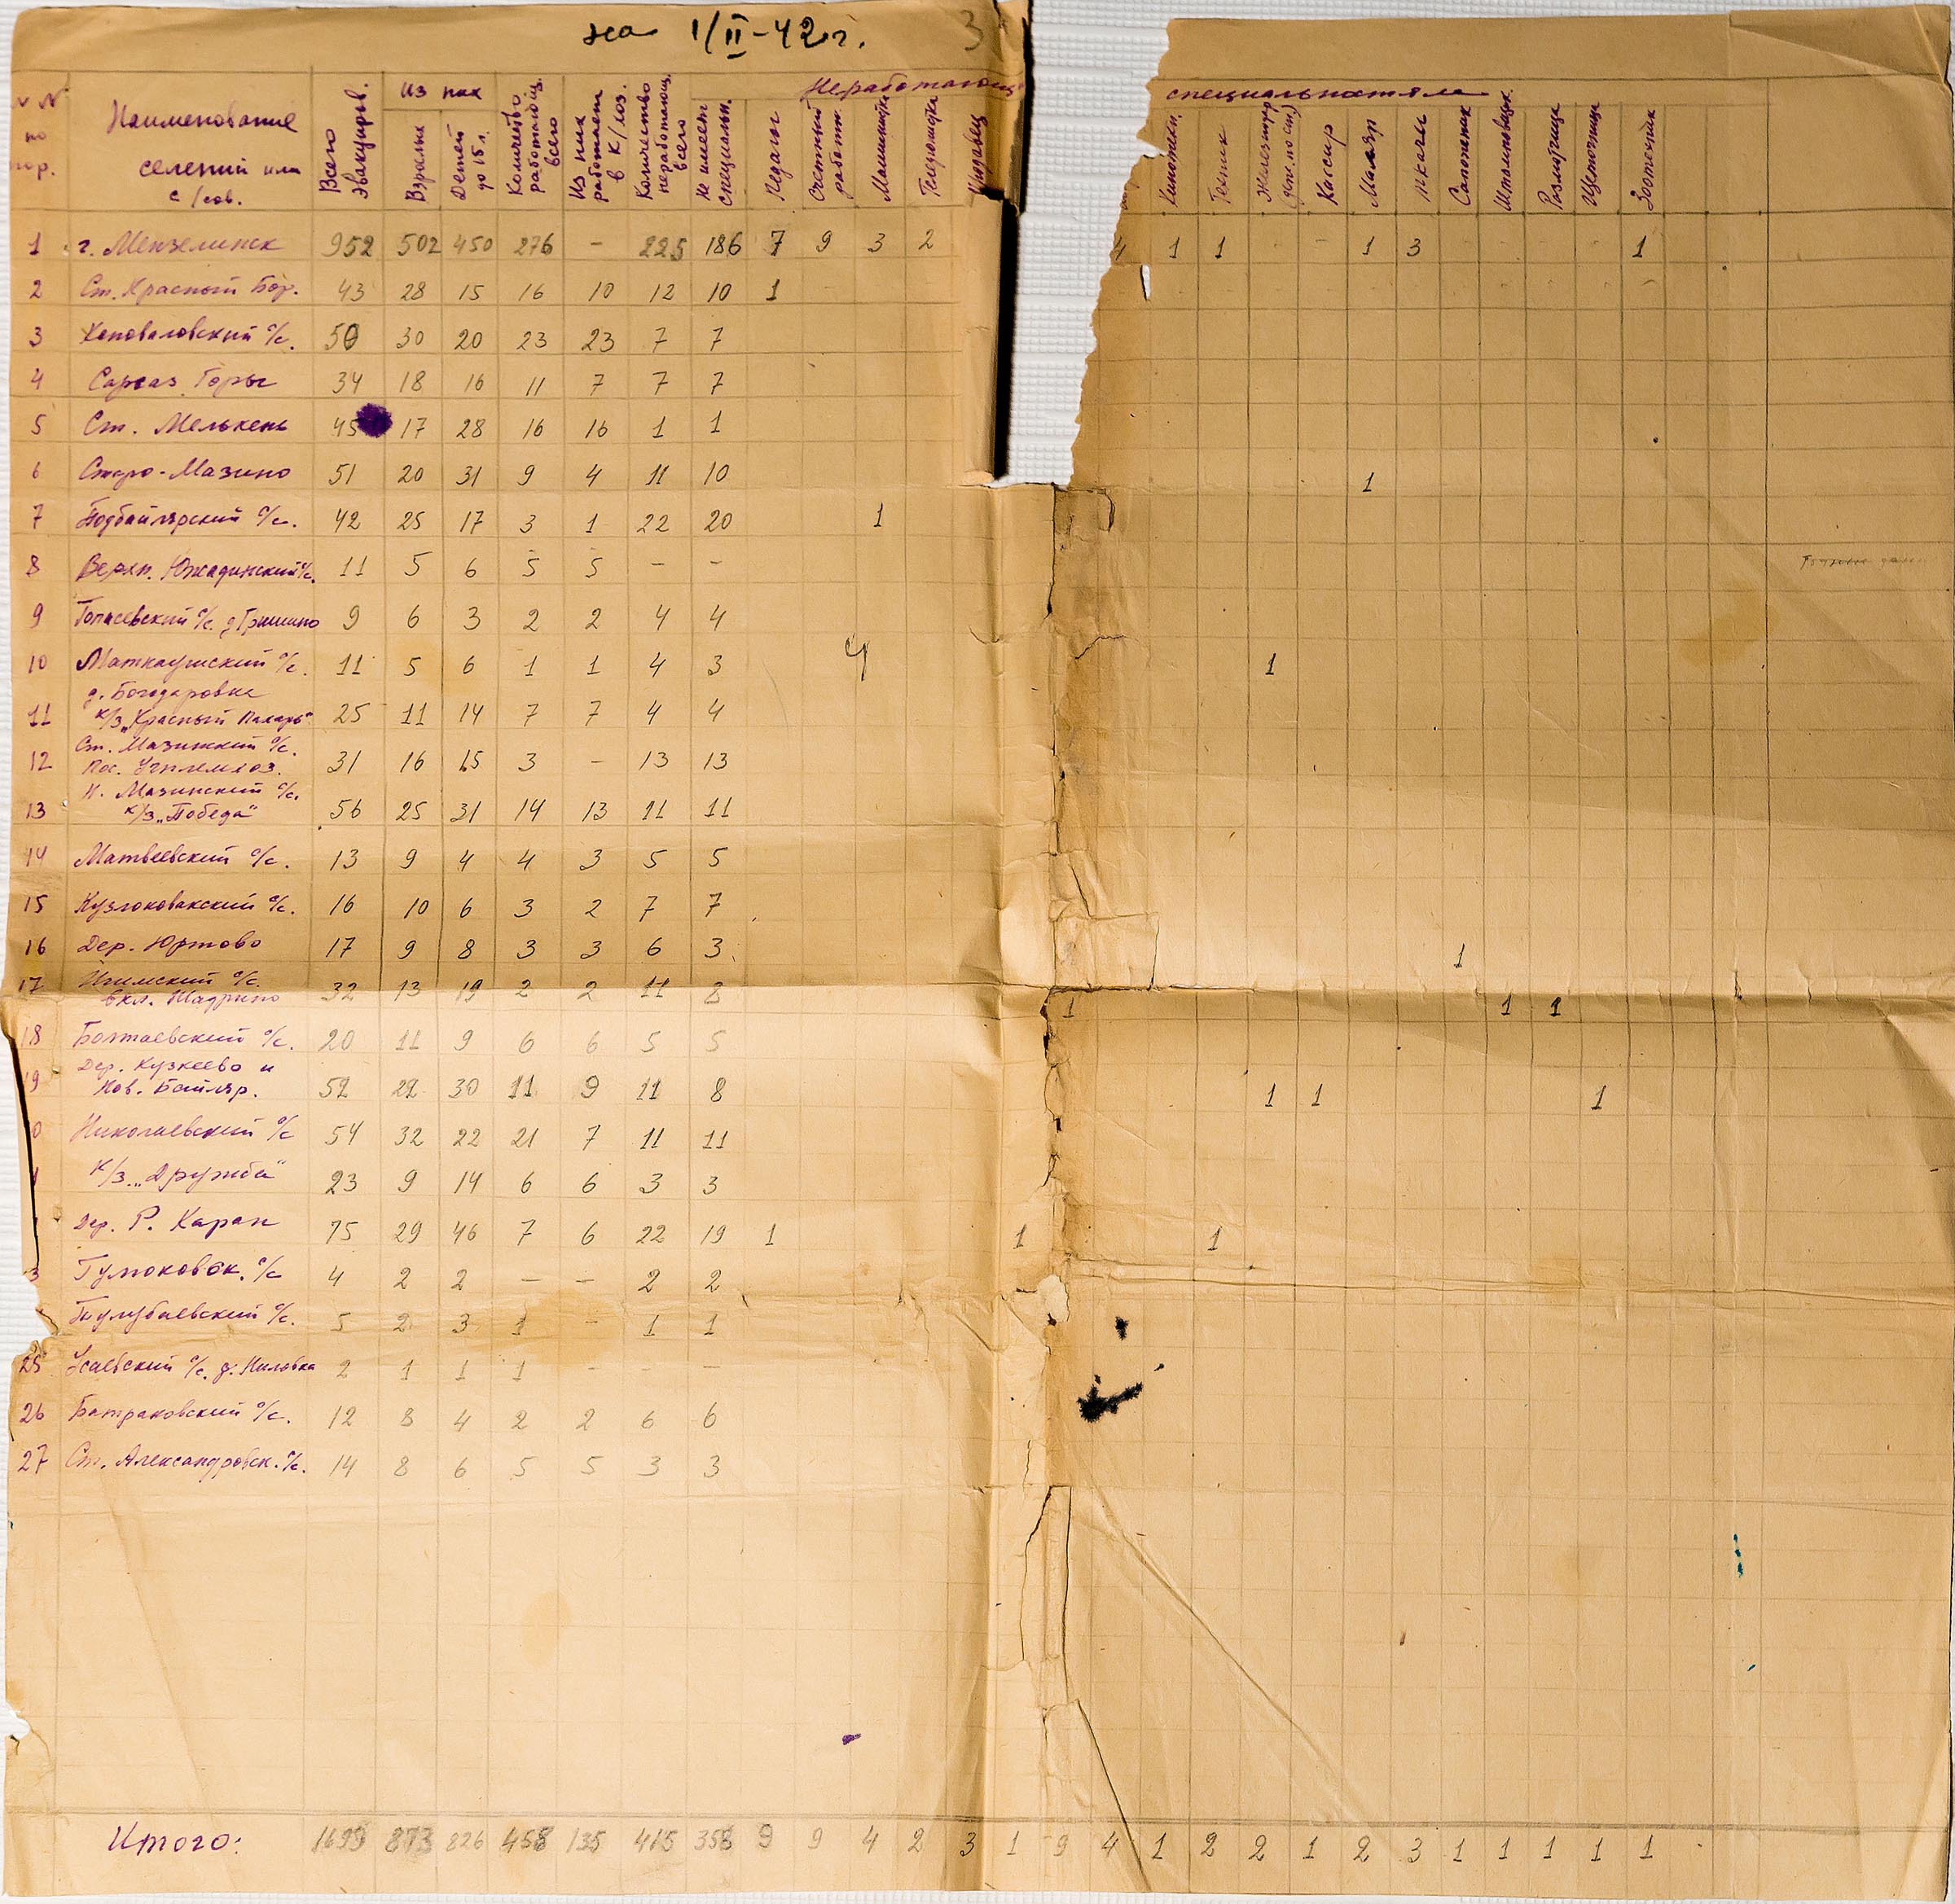 на 1/II-42 г. 3
№ № по пор.
Наименование селений или с/сов.
Всего эвакуиров.
Из них
Взрослых
Детей до 15 л.
Количество работающ. всего
Из них работает в к/хоз.
Количество неработающ. всего
Неработающ
специальностям
Не имеет специальн.
Педагог
Счетный работн.
Машинистка
Продавец
Техник
Кассир
Маляр
Ткачи
Сапожник
Штамповщ.
Щеточница
Зоотехник
1 г. Мензелинск 952 502 450 276 - 225 186 7 9 3 2 4 1 1 - - 1 3 - - - - 1
2 Ст. Красный Бор. 43 28 15 16 10 12 10 1
3 Коноваловский с/с. 50 30 20 23 23 7 7
4 Саргаз. Горы 34 18 16 11 7 7 7
5 Ст. Мелькень 45 17 28 16 16 1 1
6 Старо-Мазино 51 20 31 9 4 11 10 1
7 Подбайлярский с/с. 42 25 17 3 1 22 20 1
8 Верхн. с/с. 11 5 6 5 5 - -
9 с/с. д Гришино 9 6 3 2 2 4 4
10 Маткаушский с/с. 11 5 6 1 1 4 3 4 1
д. Богодаровка
11 к/з „Красный Пахарь" 25 11 14 7 7 4 4
Ст. Мазинский с/с.
12 пос. 31 16 15 3 - 13 13
Н. Мазинский с/с.
13 к/з „Победа" 56 25 31 14 13 11 11
14 Матвеевский с/с. 13 9 4 4 3 5 5
15 с/с. 16 10 6 3 2 7 7
16 Дер. Юртово 17 9 8 3 3 6 3 1
Игимский с/с.
17 вкл. Шадрино 32 13 19 2 2 11 8 1 1 1
18 Болтаевский с/с. 20 11 9 6 6 5 5
Дер. Кузкеево и
9 Нов. Байляр. 52 22 30 11 9 11 8 1 1 1
0 Николаевский с/с 54 32 22 21 7 11 11
к/з. „Дружба" 23 9 14 6 6 3 3
Дер. Р. Каран 75 29 46 7 6 22 19 1 1 1
3 с/с 4 2 2 - - 2 2
с/с. 5 2 3 1 - 1 1
25 Усаевский с/с. д. 2 1 1 1 - - -
26 Батраковский с/с. 12 8 4 2 2 6 6
27 Ст. Александровск. с/с. 14 8 6 5 5 3 3
Итого: 1699 873 826 458 135 415 358 9 9 4 2 3 1 9 4 1 2 2 1 2 3 1 1 1 1 1